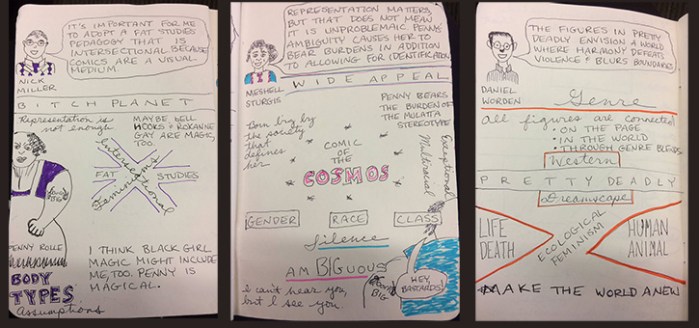 IT'S IMPORTANT FOR ME
TO ADOPT A FAT STUDIES
PEDAGOGY THAT IS
INTERSECTIONAL BECAUSE
COMICS ARE A VISUAL
MEDIUM.
NICK
MILLER
BITCH PLANET
Representation is
not enough.
MAYBE BELL
HOOKS & ROXANE
GAY ARE MAGIC,
TOO.
Intersectional
Feminism
FAT STUDIES
BORN
BIG
PENNY ROLLE
BODY
TYPES
Assumptions
I THINK BLACK GIRL
MAGIC MIGHT INCLUDE
ME, TOO. PENNY IS
MAGICAL.
REPRESENTATION MATTERS,
BUT THAT DOES NOT MEAN
IT IS UNPROBLEMAIC. PENNY'S
AMBIGUITY CAUSES HER TO
BEAR BURDENS IN ADDITION
TO ALLOWING FOR IDENTIFICATION.
MESHELL
STURGIS
WIDE APPEAL
Born big by
the society
that
defines
her
PENNY BEARS
THE BURDEN OF
THE MULATTA
STEREOTYPE
Exceptional
Multiracial
COMIC
OF THE
COSMOS
GENDER RACE CLASS
Silence
AM BIG UOUS
I can't hear you,
but I see you.
BORN
BIG
HEY,
BASTARDS!
THE FIGURES IN PRETTY
DEADLY ENVISION A WORLD
WHERE HARMONY DEFEATS
VIOLENCE & BLURS BOUNDARIES
DANIEL
WORDEN
Genre
all figures are connected
• ON THE PAGE
• IN THE WORLD
• THROUGH GENRE BLENDS
Western
PRETTY DEADLY
Dreamscape
LIFE
DEATH
ECOLOGICAL
FEMINISM
HUMAN
ANIMAL
MAKE THE WORLD ANEW